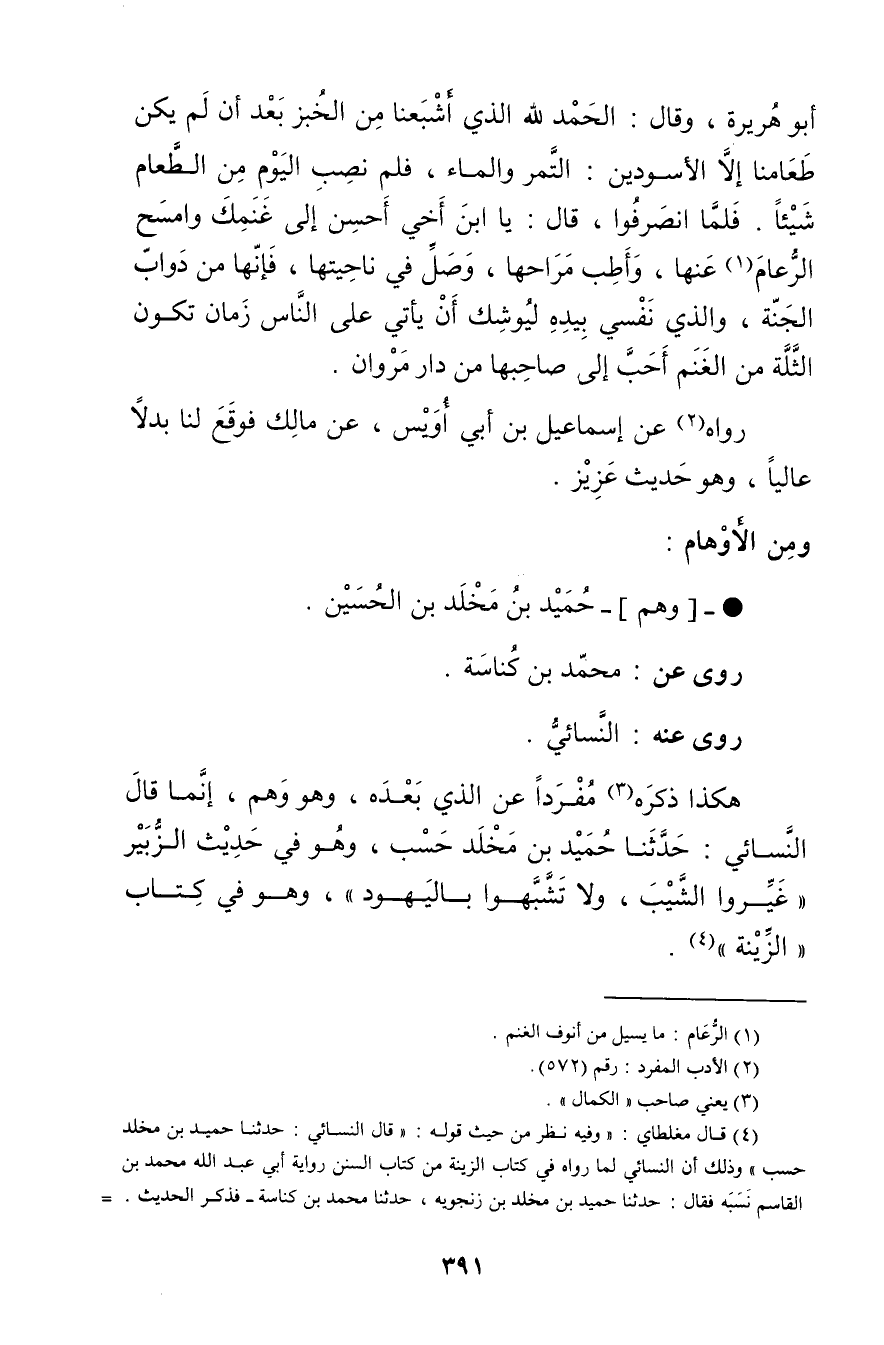 أبو هُريرة ، وقال : الحَمْد لله الذي أَشْبَعنا مِن الخُبز بَعْد أن لَم يكن
طَعَامنا إلَّا الأسودين : التَّمر والماء ، فلم نصِبِ اليَوْم مِن الطَّعام
شَيْئاً . فَلمَّا انصَرفُوا ، قال : يا ابنَ أخي أَحسِن إلى غَنَمِكَ وامسَح
الرُّعامَ(١) عَنها ، وَأَطِب مَرَاحها ، وَصَلِّ في ناحِيتها ، فَإنّها من دَوابّ
الجَنّة ، والذي نَفْسي بِيدِهِ ليُوشِك أَنْ يأتي على النَّاس زَمان تكون
الثَّلَّة من الغَنَم أَحَبَّ إلى صاحِبها من دار مَرْوان .
رواه(٢) عن إسماعيل بن أبي أُوَيْس ، عن مالِك فوقَعَ لنا بدلاً
عالياً ، وهو حَديث عَزِيْز .
ومِن الأَوْهام :
● ـ [ وهم ] ـ حُمَيْد بنُ مَخْلَد بن الحُسَيْن .
روى عن : محمّد بن كُناسَة .
روى عنه : النَّسائيُّ .
هكذا ذكرَه(٣) مُفْرَداً عن الذي بَعْدَه ، وهو وَهم ، إنَّما قالَ
النَّسائي : حَدَّثَنا حُمَيْد بن مَخْلَد حَسْب ، وهُو في حَدِيْث الزُّبَيْر
« غَيِّروا الشَّيْبَ ، ولا تَشَّبَّهوا باليَهود » ، وهو في كِتاب
« الزِّيْنة »(٤) .
(١) الرُّعَام : ما يسيل من أنوف الغنم .
(٢) الأدب المفرد : رقم (٥٧٢).
(٣) يعني صاحب « الكمال » .
(٤) قال مغلطاي : « وفيه نظر من حيث قوله : « قال النسائي : حدثنا حميد بن مخلد
حسب » وذلك أن النسائي لما رواه في كتاب الزينة من كتاب السنن رواية أبي عبد الله محمد بن
القاسم نَسَبَه فقال : حدثنا حميد بن مخلد بن زنجويه ، حدثنا محمد بن كناسة ـ فذكر الحديث . =
٣٩١